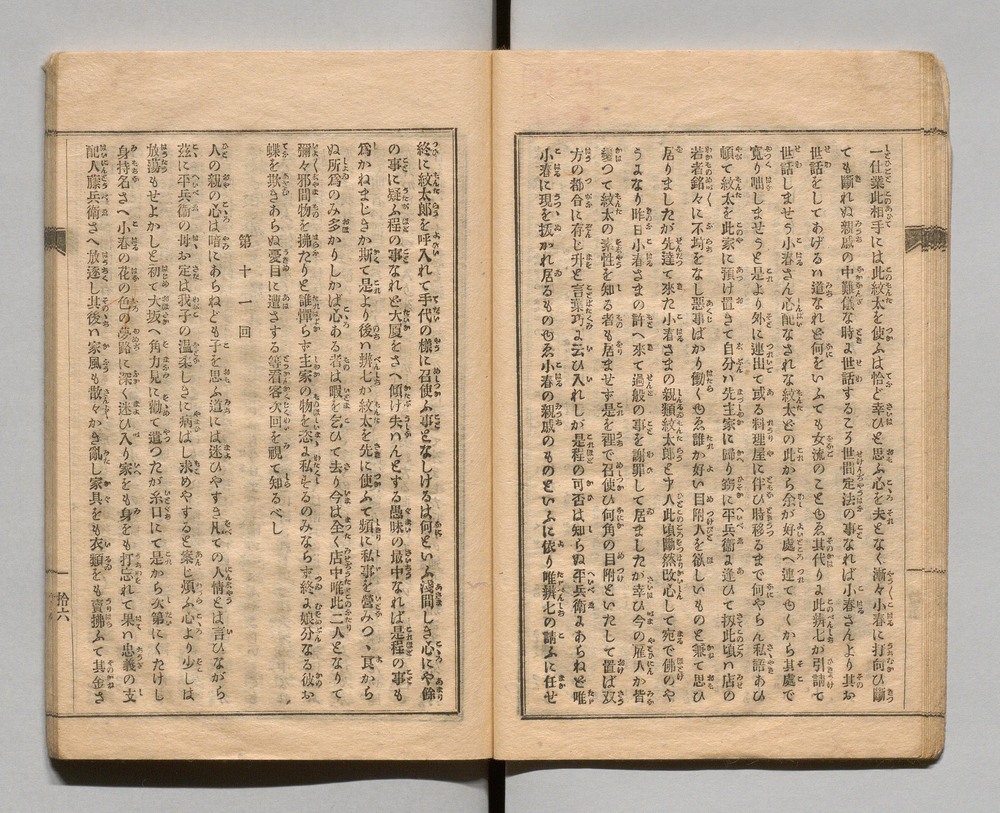 一仕業此相手には此紋太を使ふは恰ど幸ひと思ふ心を夫となく漸々小春に打向ひ斷
ても斷れぬ親戚の中難儀な時よ世話するころ世間定法の事なれば小春さんより其お
世話をしてあげるハ道なれど何をいふても女流のことゆゑ其代りよ此辨七が引請て
世話しませう小春さん心配なされな紋太どの此から余が好處へ連てゆくから其處で
寛り咄しませうと是より外に連出て或る料理屋に伴ひ時移るまで何やらん私語あひ
頓て紋太を此家に預け置きて自分ハ先主家に歸り窃に平兵衞よ逢ひて扨此頃ハ店の
若者銘々に不埓をなし惡事ばかり働くゆゑ誰か好い目附人を欲しいものと兼て思ひ
居りましたが先達て來た小春さまの親類紋太郎と申人此頃飜然改心して宛で佛のや
うよなり昨日小春さまの許へ來て過般の事を謝罪して居ましたが幸ひ今の雇人か皆
變つて紋太の素性を知る者も居ませず是を裡で召使ひ何角の目附といたして置ば双
方の都合に存じ升と言葉巧よ云ひ入れしが是程の可否は知らぬ平兵衞よあらねど唯
小春に現を拔かれ居るものゆゑ小春の親戚のものといふに依り唯辨七の請ふに任せ
終に紋太郎を呼入れて手代の樣に召使ふ事となしけるは何といふ淺間しき心にや餘
の事に疑ふ程の事なれど大厦をさへ傾け失ハんとする愚昧の最中なれば是程の事も
爲かねまじきか斯て是より後ハ辨七が紋太を先に使ふて頻に私事を營みつゝ良から
ぬ所爲のみ多かりしかば心ある者は暇を乞ひて去り今は全く店中唯此二人となりて
彌々邪間物を拂たりと誰憚らず主家の物を恣よ私するのみならず終よ娘分なる彼お
蝶を欺きあらぬ憂目に遭さする等看客次回を視て知るべし
第十一回
人の親の心は暗にあらねども子を思ふ道には迷ひやすき凡ての人情とは言ひながら
玆に平兵衞の母お定は我子の温柔しさに病はし求めやすると案じ煩ふ心より少しは
放蕩もせよかしと初て大坂へ角力見に勸て遣つたが糸口にて是から次第にくたけし
身持名さへ小春の花の色の夢路に深く迷ひ入り家をも身をも打忘れて果ハ忠義の支
配人藤兵衞さへ放逐し其後ハ家風も散々かき亂し家具をも衣類をも賣拂ふて其金さ
拾六